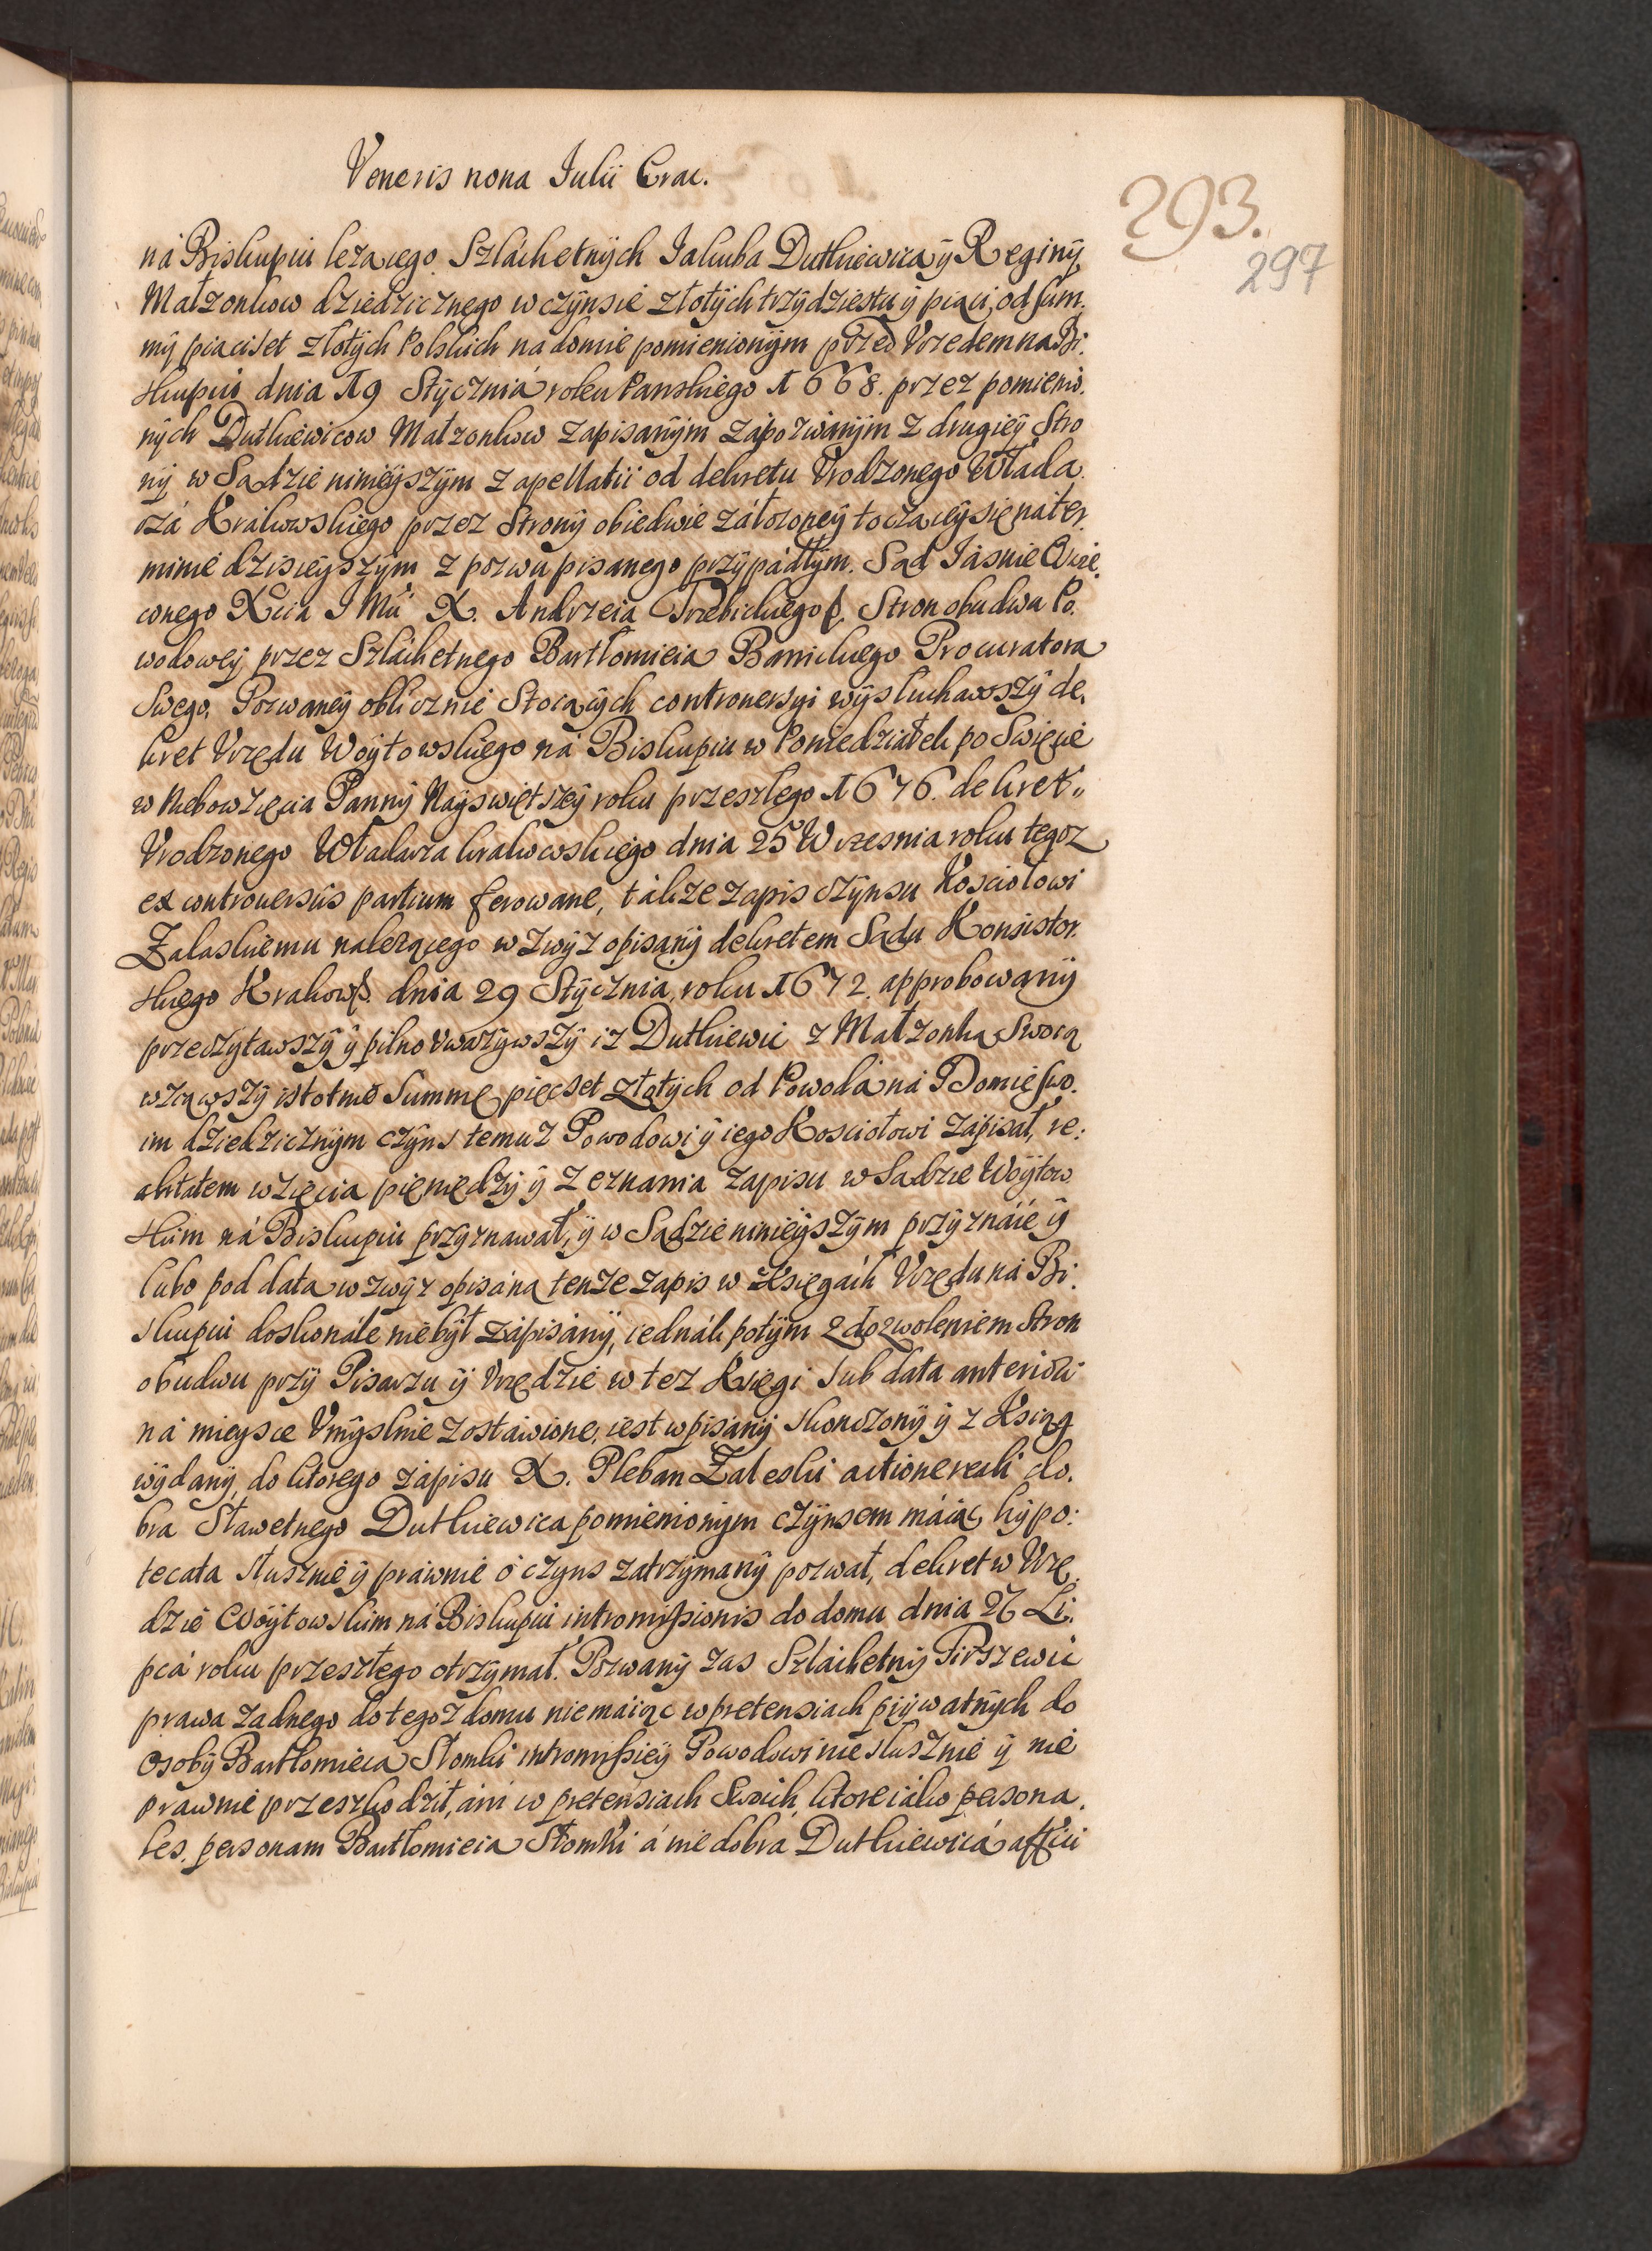 Veneris nona Iulii Crac.
293.
297
ná Biskupiu lezącego Szláchetnych Iakuba Dutkiewica ÿ Reginÿ
Małzonkow dziedzicznego w czynsie złotÿch trzÿdziestu ÿ piąci, od sum.
mÿ piąciset złotÿch Polskich na domie pomienionÿm przed Vrzedem na Bi.
skupiu dnia 19 Stÿcznia roku Panskiego 1668. przez pomienio.
nÿch Dutkiewicow Małzonkow zapisanÿm zápozwánÿm z drugieÿ Stro
nÿ w Sądzie ninieÿszÿm z apellatii od dekretu Vrodzonego Włada.
rzá Krákowskiego przez Stronÿ obiedwie záłozoneÿ toczącÿ się ná ter.
minie dzisieÿszÿm z pozwu pisanego przÿpádłÿm. Sąd Iásnie Oswie.
conego Xcia I Mci X. Andrzeia Trzebickiego p. Stron obudwu Po.
wodoweÿ przez Szláchetnego Bartłomieia Barnickiego Procuratora
Swego, Pozwaneÿ oblicznie Stoiącÿch controversyi wÿsłuchawszÿ de.
kret Vrzędu Woÿtowskiego ná Biskupiu w Poniedziałek po Swięcie
w Niebowzięcia Pannÿ Naÿswiętszeÿ roku przeszłego 1676. dekret
Vrodzonego Władarza krakowskiego dnia 25 Wrzesnia roku tegoz
ex controversiis partium ferowane, tákze zapis czÿnsu Kosciołowi
Zalaskiemu nalezącego wzwÿz opisanÿ dekretem Sądu Konsistor.
skiego Krakows. dnia 29 Stÿcznia, roku 1672. approbowanÿ
przeczÿtawszÿ ÿ pilno vwazÿwszÿ iz Dutkiewic z Małzonką Swoią
wziąwszÿ istotnie Summę pięcset złotÿch od Powodá ná Domie swo.
im dziedzicznÿm czÿns temuz Powodowi ÿ iego Kosciołowi zápisał, re:
alitatem wzięcia pieniędzÿ ÿ zeznania zapisu w Sądzie Woÿtow
skim ná Biskupiu przÿznawał, ÿ w Sądzie ninieÿszÿm przÿznáie ÿ
lubo pod datą wzwÿz opisáną tenze zapis w Księgách Vrzędu ná Bi.
skupiu doskonále nie bÿł zápisánÿ, iednák potÿm z dozwoleniem Stron
obudwu przÿ Pisarzu ÿ Vrzędzie w tez Księgi sub data anteriori
ná mieysce Vmÿslnie zostáwione, iest wpisanÿ skonczonÿ ÿ z Ksiąg
wÿdanÿ, do ktorego zápisu X. Pleban Zaleski actione reali do.
bra Sławetnego Dutkiewica pomienionÿm czÿnsem máiąc hÿpo:
tecata słusznie ÿ práwnie o czyns zatrzÿmanÿ pozwał, dekret w Vrzę.
dzie Woÿtowskim ná Biskupiu intromissionis do domu dnia 27 Li.
pcá roku przeszłego otrzÿmał. Pozwanÿ zas Szláchetnÿ Pirszewic
prawa zadnego do tegoz domu nie maiąc w pretensiach prÿwatnÿch do
osobÿ Bartłomieia Słomki intromissieÿ Powodowi niesłusznie ÿ nie
prawnie przeszkodził, áni w pretensiach Swoich, ktore iáko persona.
les, personam Bartłomieia Słomki á nie dobra Dutkiewicá afficiu